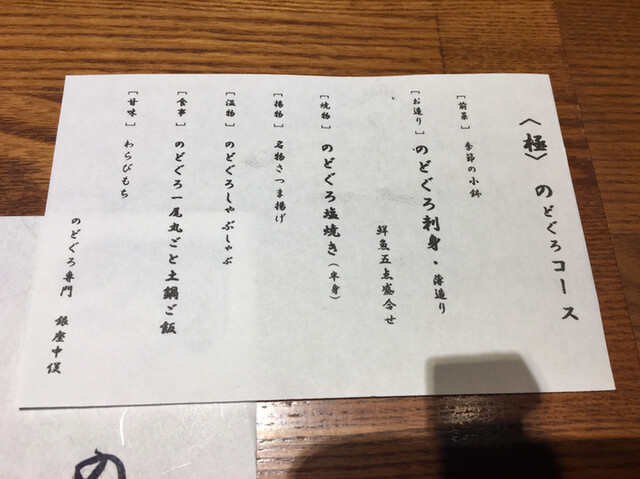 〈極〉 のどぐろコース
[前菜] 季節の小鉢
[お造り] のどぐろ刺身・薄造り
鮮魚五点盛合せ
[焼物] のどぐろ塩焼き(半身)
[揚物] 名物さつま揚げ
[温物] のどぐろしゃぶしゃぶ
[食事] のどぐろ一尾丸ごと土鍋ご飯
[甘味] わらびもち
のどぐろ専門 銀座中俣
の